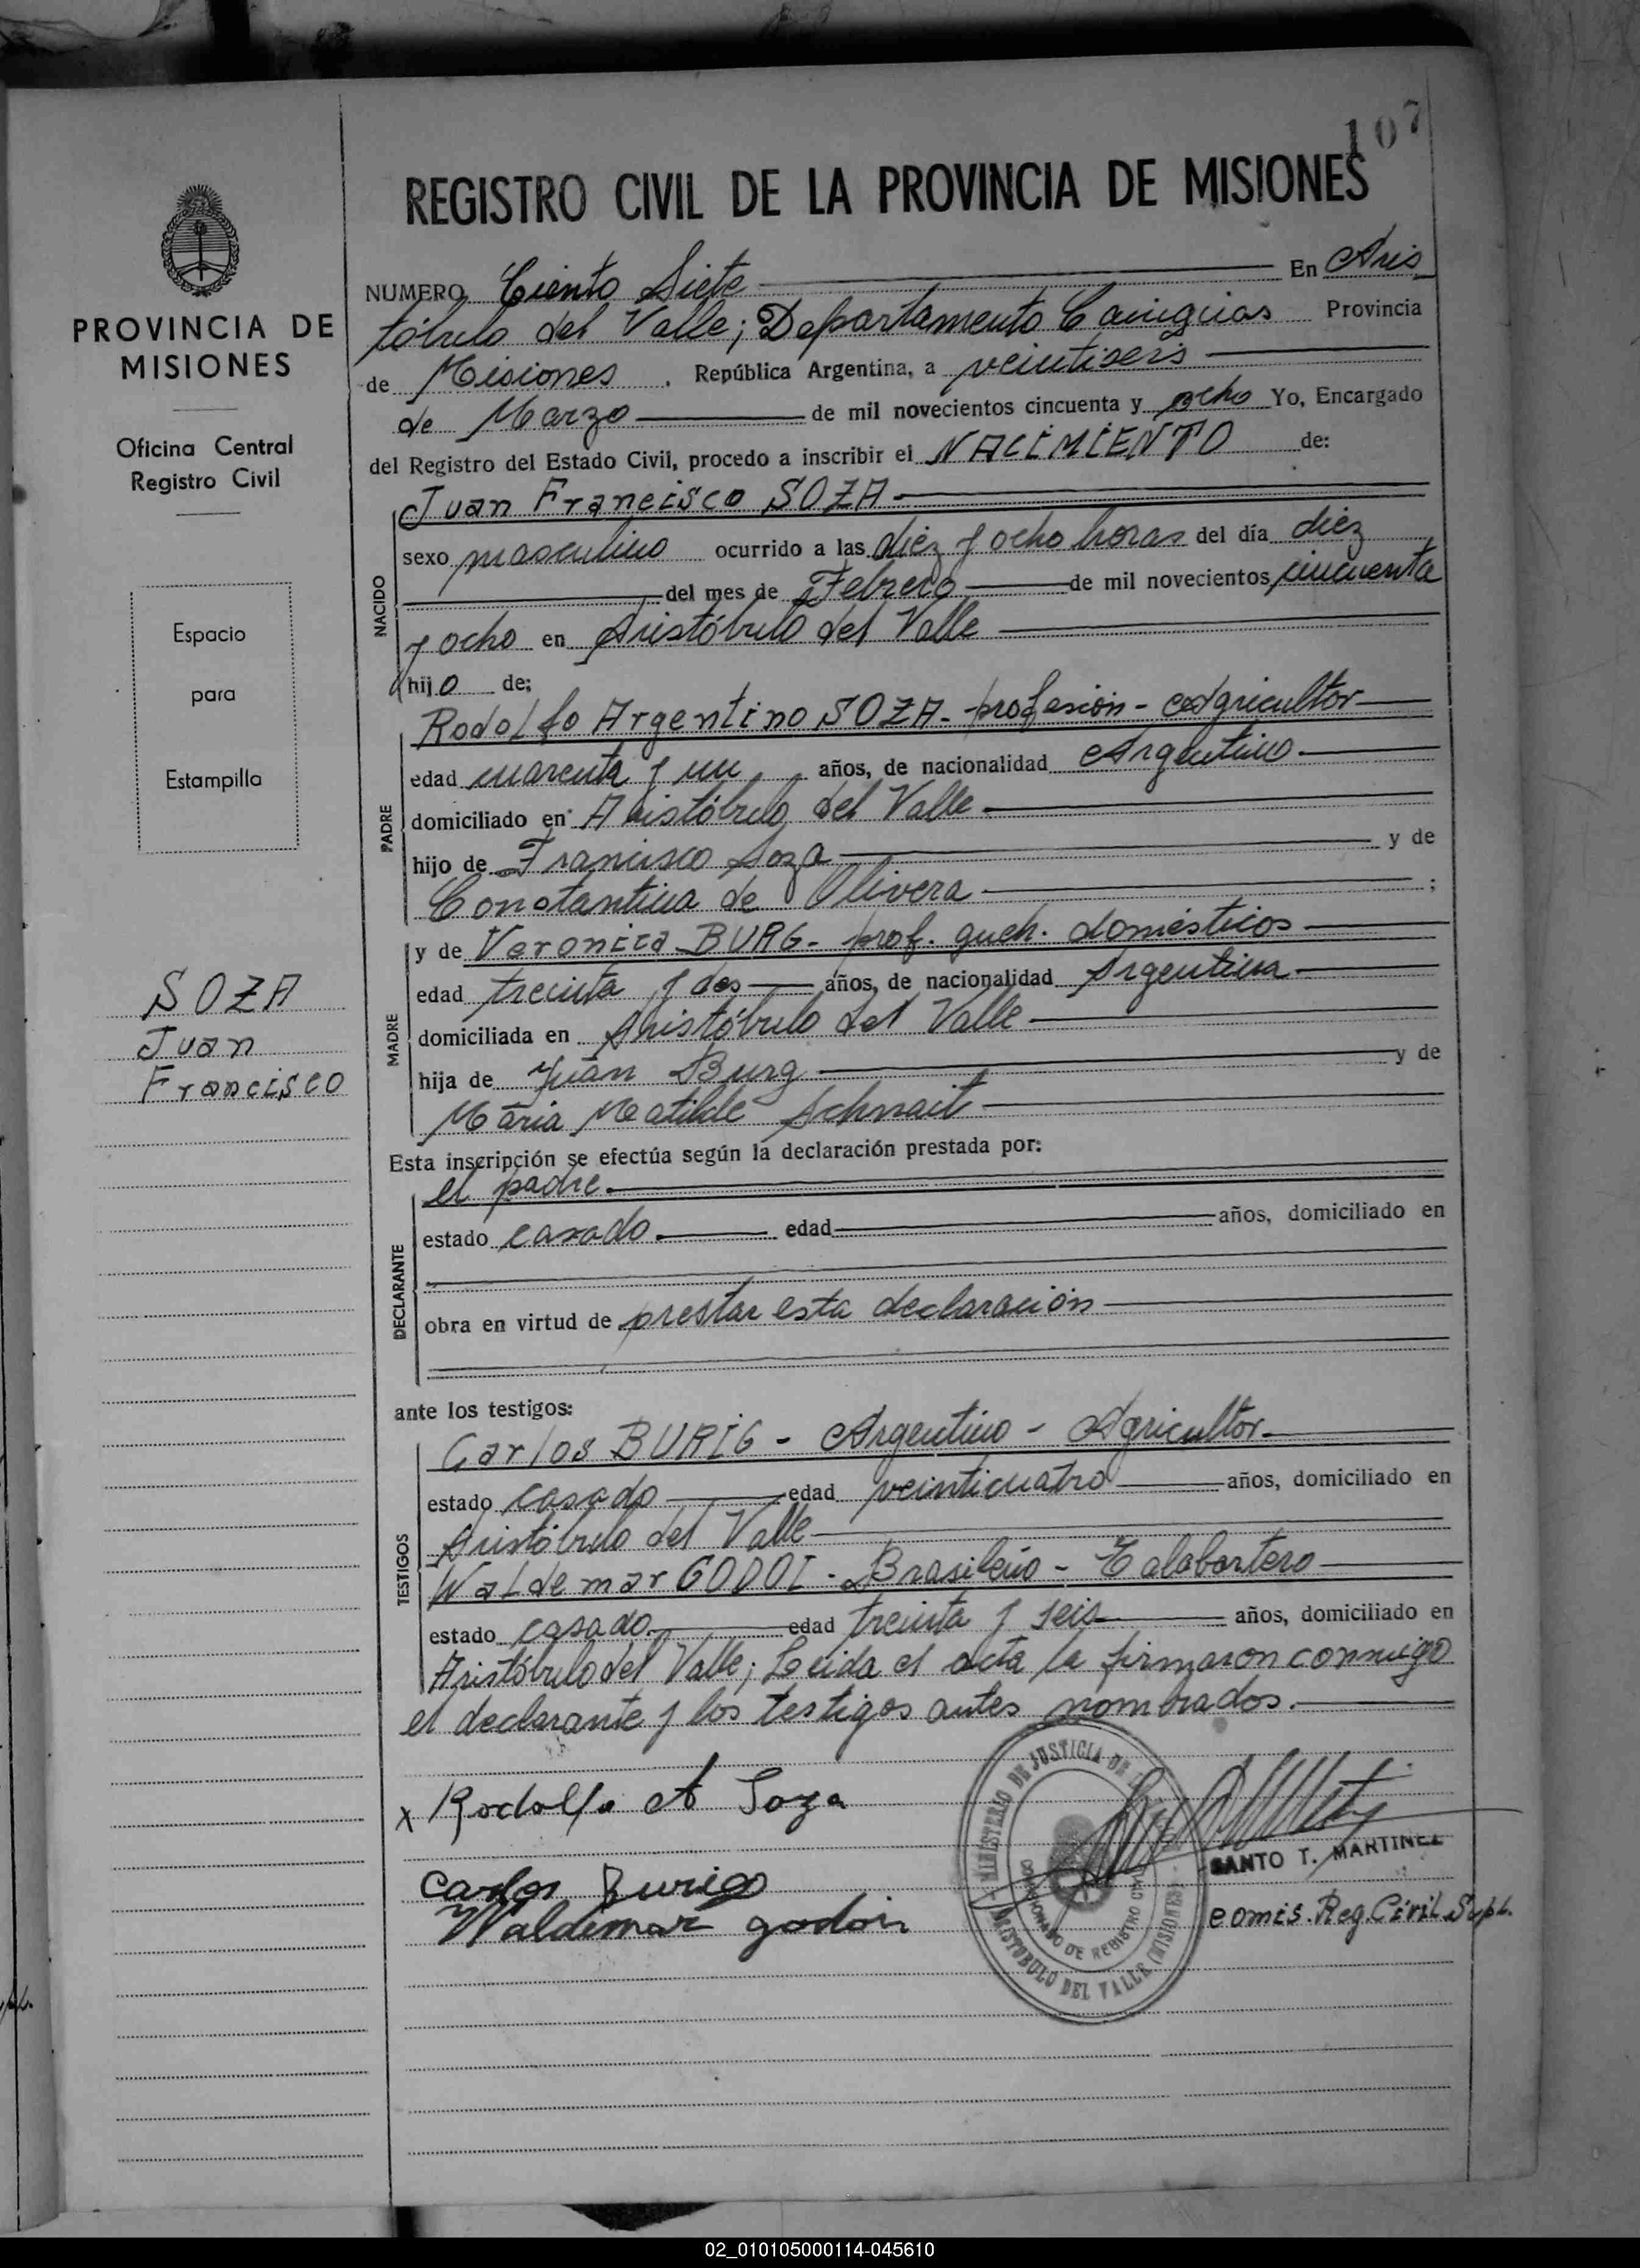 107
REGISTRO CIVIL DE LA PROVINCIA DE MISIONES
PROVINCIA DE
MISIONES
Oficina Central
Registro Civil
Espacio
para
Estampilla
SOZA
Juan
Francisco
NUMERO Ciento Siete En Aris
tóbulo del Valle; Departamento Cainguas Provincia
de Misiones, República Argentina, a veintiseis
de Marzo de mil novecientos cincuenta y ocho Yo, Encargado
del Registro del Estado Civil, procedo a inscribir el NACIMIENTO de:
NACIDO
Juan Francisco SOZA
sexo masculino ocurrido a las diez y ocho horas del día diez
del mes de Febrero de mil novecientos cincuenta
y ocho en Aristóbulo del Valle
hijo de;
PADRE
Rodolfo Argentino SOZA - profesión - Agricultor
edad cuarenta y un años, de nacionalidad Argentino
domiciliado en Aristóbulo del Valle
hijo de Francisco Soza y de
Constantina de Olivera ;
MADRE
y de Veronica BURG - prof. queh. domésticos
edad treinta y dos años, de nacionalidad Argentina
domiciliada en Aristóbulo del Valle
hija de Juan Burg y de
Maria Matilde Schmait
Esta inscripción se efectúa según la declaración prestada por:
DECLARANTE
el padre.
estado casado. edad años, domiciliado en
obra en virtud de prestar esta declaración
ante los testigos:
TESTIGOS
Carlos BURIG - Argentino - Agricultor
estado casado edad veinticuatro años, domiciliado en
Aristóbulo del Valle
Waldemar GODOI - Brasileño - Talabartero
estado casado. edad treinta y seis años, domiciliado en
Aristóbulo del Valle; Leida el acta la firmaron conmigo
el declarante y los testigos antes nombrados.
x Rodolfo A Soza
Carlos Burigo
Waldemar godoi
MINISTERIO DE JUSTICIA DE
COMISIONADO DE REGISTRO CIVIL
ARISTOBULO DEL VALLE (MISIONES)
SANTO T. MARTINEZ
comis. Reg. Civil Supl.
02_010105000114-045610